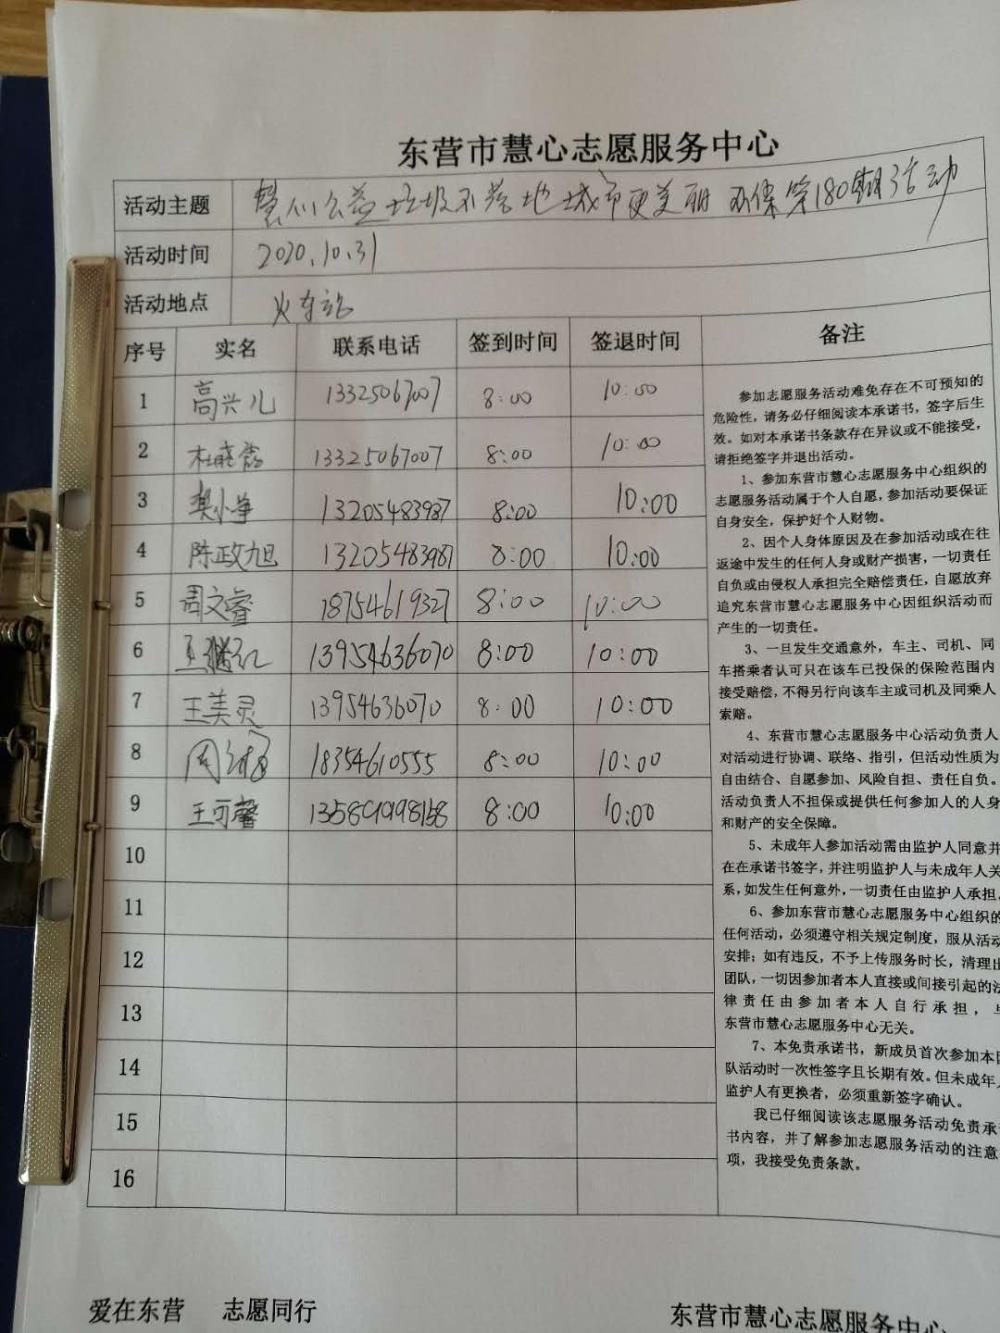 东营市慧心志愿服务中心
活动主题 慧心公益 垃圾不落地 城市更美丽 环保第180期活动
活动时间 2020.10.31
活动地点 火车站
序号 实名 联系电话 签到时间 签退时间 备注
1 高兴儿 13325067007 8:00 10:00
2 杜晓 13325067007 8:00 10:00
3 樊小筝 13205483987 8:00 10:00
4 陈政旭 13205483987 8:00 10:00
5 周文睿 18754619327 8:00 10:00
6 13954636070 8:00 10:00
7 王美灵 13954636070 8:00 10:00
8 周 18354610555 8:00 10:00
9 王可馨 8:00 10:00
10
11
12
13
14
15
16
参加志愿服务活动难免存在不可预知的
危险性，请务必仔细阅读本承诺书，签字后生
效。如对本承诺书条款存在异议或不能接受，
请拒绝签字并退出活动。
1、参加东营市慧心志愿服务中心组织的
志愿服务活动属于个人自愿，参加活动要保证
自身安全，保护好个人财物。
2、因个人身体原因及在参加活动或在往
返途中发生的任何人身或财产损害，一切责任
自负或由侵权人承担完全赔偿责任，自愿放弃
追究东营市慧心志愿服务中心因组织活动而
产生的一切责任。
3、一旦发生交通意外，车主、司机、同
车搭乘者认可只在该车已投保的保险范围内
接受赔偿，不得另行向该车主或司机及同乘人
索赔。
4、东营市慧心志愿服务中心活动负责人
对活动进行协调、联络、指引，但活动性质为
自由结合、自愿参加、风险自担、责任自负。
活动负责人不担保或提供任何参加人的人身
和财产的安全保障。
5、未成年人参加活动需由监护人同意并
在在承诺书签字，并注明监护人与未成年人关
系，如发生任何意外，一切责任由监护人承担。
6、参加东营市慧心志愿服务中心组织的
任何活动，必须遵守相关规定制度，服从活动
安排；如有违反，不予上传服务时长，清理出
团队，一切因参加者本人直接或间接引起的法
律责任由参加者本人自行承担，与
东营市慧心志愿服务中心无关。
7、本免责承诺书，新成员首次参加本团
队活动时一次性签字且长期有效。但未成年人
监护人有更换者，必须重新签字确认。
我已仔细阅读该志愿服务活动免责承诺
书内容，并了解参加志愿服务活动的注意
项，我接受免责条款。
爱在东营 志愿同行 东营市慧心志愿服务中心